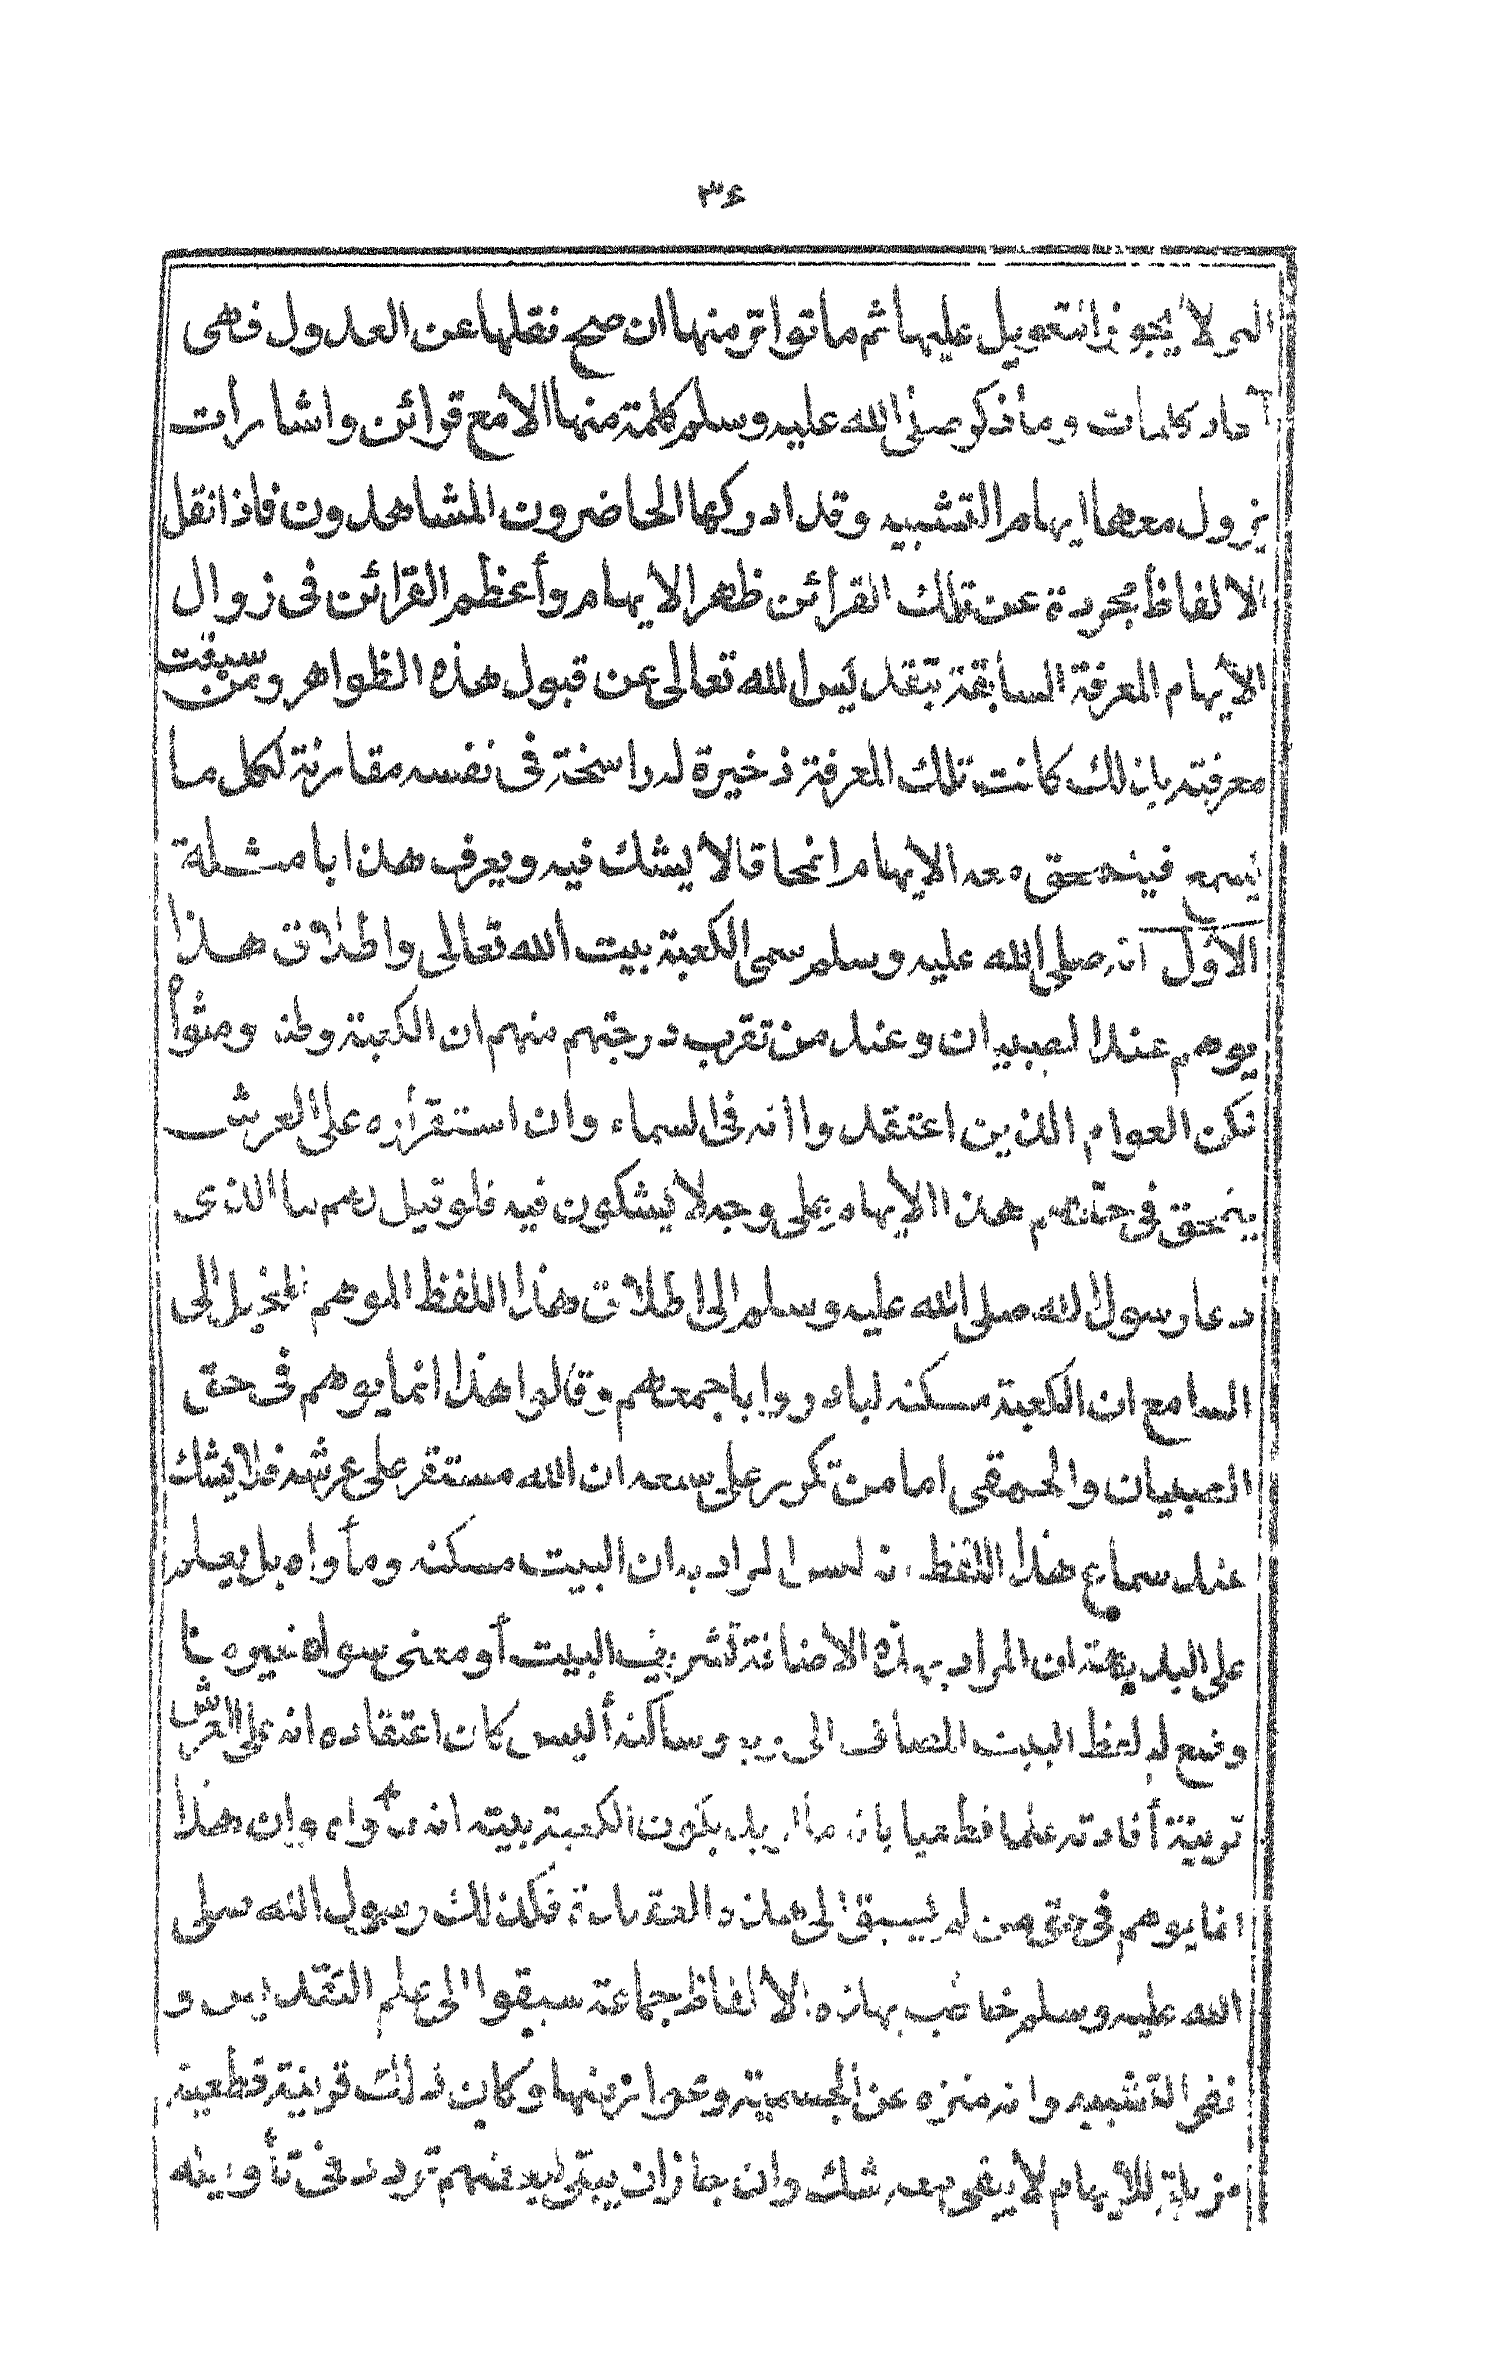 ٣٤
لا يجوز التعويل عليها ثم ما تواتر منها ان صح نقلها عن العدول فهى
آحاد كلمات وما ذكر صلى الله عليه وسلم كلمة منها الا مع قرائن واشارات
يزول معها ايهام التشبيه وقد ادركها الحاضرون المشاهدون فاذا نقل
الالفاظ مجردة عن تلك القرائن ظهر الايهام وأعظم القرائن فى زوال
الايهام المعرفة السابقة بتقديس الله تعالى عن قبول هذه الظواهر ومن سبقت
معرفته بذلك كانت تلك المعرفة ذخيرة له راسخة فى نفسه مقارنة لكل ما
يسمع فينمحق معه الايهام انمحاقا لا يشك فيه ويعرف هذا بامثلة
الاول انه صلى الله عليه وسلم سمى الكعبة بيت الله تعالى واطلاق هذا
يوهم عند الصبيان وعند من تقرب درجتهم منهم ان الكعبة وطنه ومثواه
لكن العوام الذين اعتقدوا انه فى السماء وان استقراره على العرش
ينمحق فى حقهم هذا الايهام على وجه لا يشكون فيه فلو قيل لهم ما الذى
دعا رسول الله صلى الله عليه وسلم الى اطلاق هذا اللفظ الموهم المخيل الى
السامع ان الكعبة مسكنه لبادروا باجمعهم وقالوا هذا انما يوهم فى حق
الصبيان والحمقى اما من تكرر على سمعه ان الله مستقر على عرشه فلا يشك
عند سماع هذا اللفظ انه ليس المراد به ان البيت مسكنه ومأواه بل يعلم
على البديهة ان المراد بهذه الاضافة تشريف البيت أو معنى سواه غير ما
وضع له لفظ البيت المضاف الى ربه وساكنه أليس كان اعتقاده انه على العرش
قرينة أفادته علما قطعيا بانه ما اريد بكون الكعبة بيته انه مأواه وان هذا
انما يوهم فى حق من لم يسبق الى هذه العقيدة فكذلك رسول الله صلى
الله عليه وسلم خاطب بهذه الالفاظ جماعة سبقوا الى علم التقديس و
نفى التشبيه وانه منزه عن الجسمية وعوارضها وكان ذلك قرينة قطعية
مزيلة للايهام لا يبقى معه شك وان جاز ان يبقى لبعضهم تردد فى تأويله